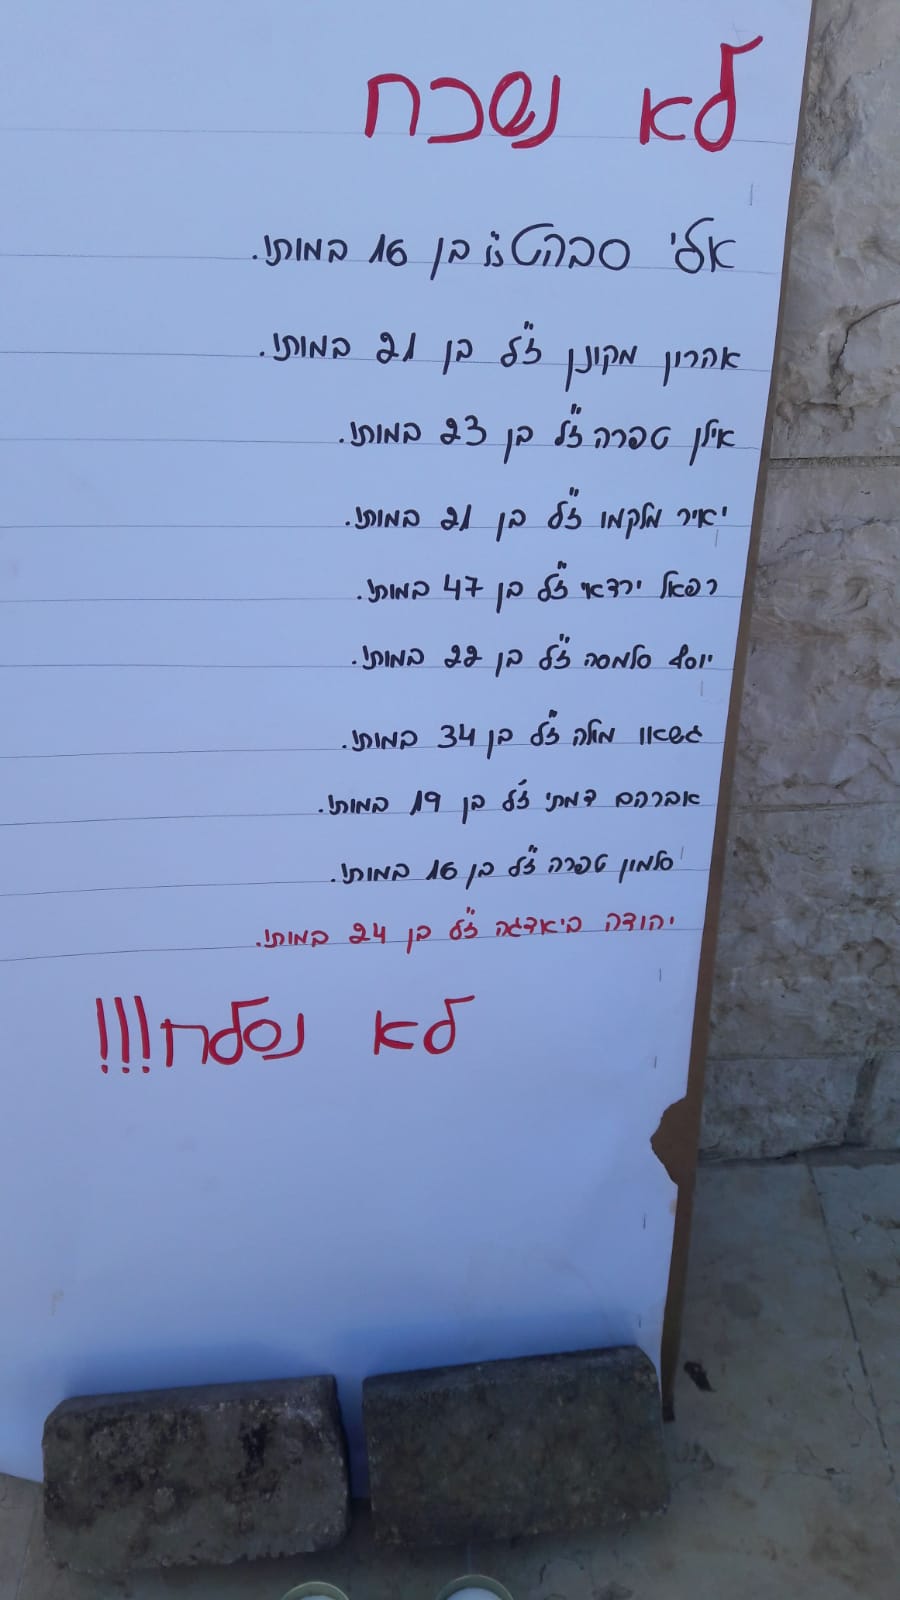 לא נשכח
אלי סבהט ז"ל בן 16 במותו.
אהרון מקונן ז"ל בן 21 במותו.
אילן טפרה ז"ל בן 23 במותו.
יאיר מלקמו ז"ל בן 21 במותו.
רפאל ירדאי ז"ל בן 47 במותו.
יוסף סלמסה ז"ל בן 22 במותו.
גשאו מולה ז"ל בן 34 במותו.
אברהם דמתי ז"ל בן 19 במותו.
סלמון טפרה ז"ל בן 16 במותו.
יהודה ביאדגה ז"ל בן 24 במותו.
לא נסלח!!!